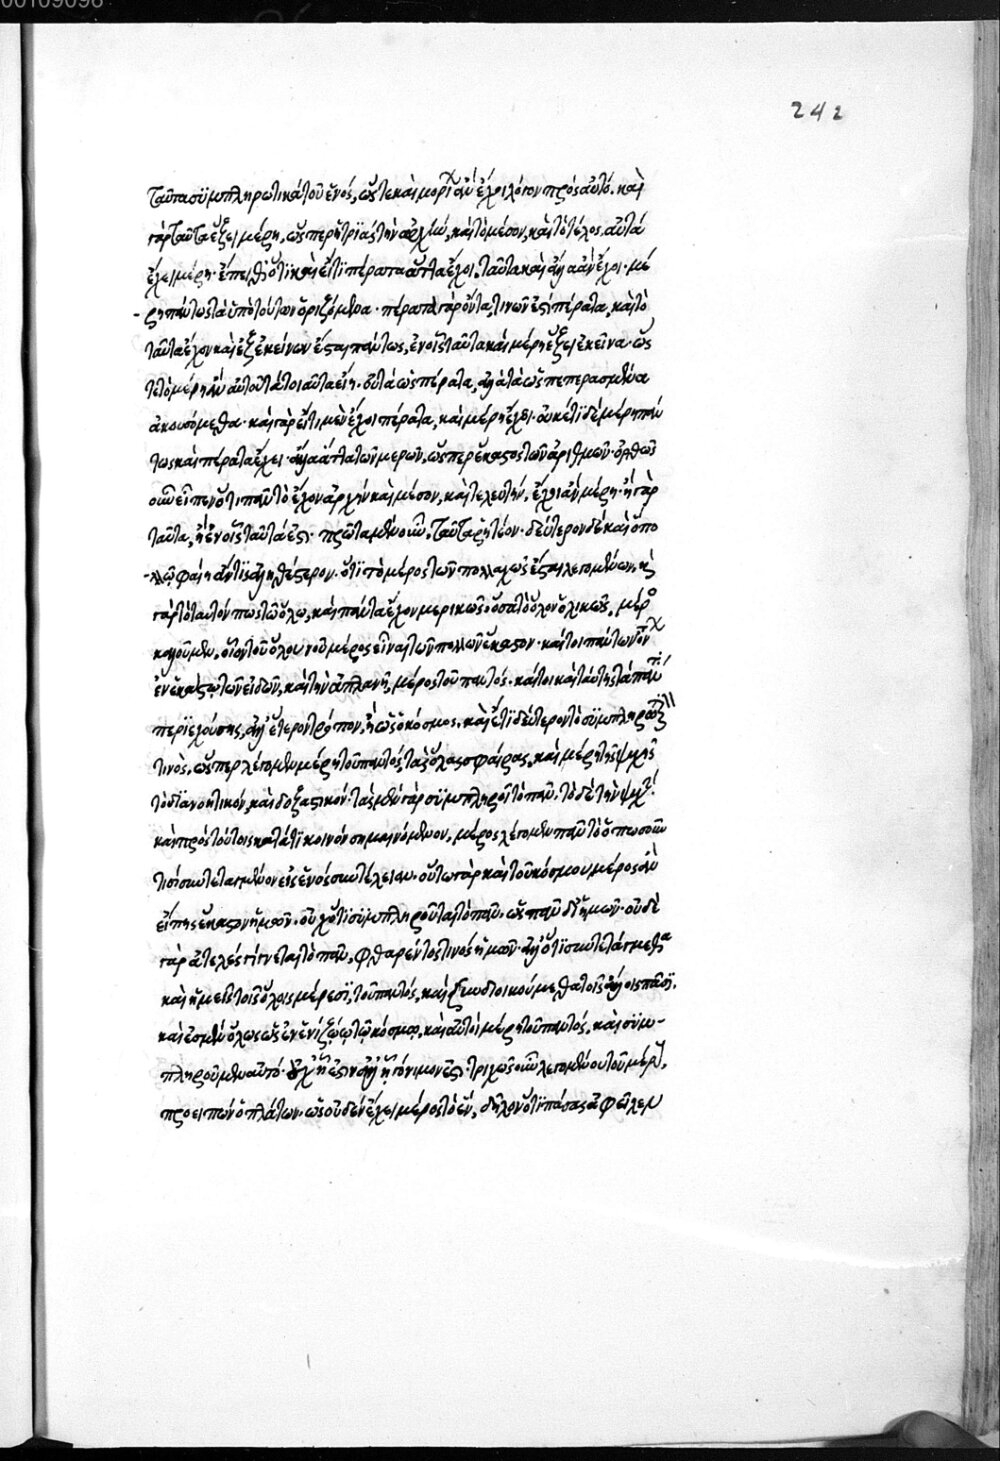 00109098
242
ταῦτα συμπληρωτικὰ τοῦ ἑνός, ὥστε καὶ μορίων ἂν ἔχοι λόγον πρὸς αὐτό. καὶ
γὰρ ταῦτα ἕξει μέρη, ὥσπερ ἡ τριὰς τὴν ἀρχὴν, καὶ τὸ μέσον, καὶ τὸ τέλος. αὐτὰ
ἔχει μέρη. ἔπειθ' ὅτι καὶ εἴ τι πέρατα αὐτὰ ἔχοι, ταῦτα καὶ ἀλλὰ ἂν ἔχοι. μέ
ρη πάντως τὰ ὑπὸ τούτων ὁριζόμενα. πέρατα γὰρ ὄντα, τινῶν ἐστὶ πέρατα, καὶ τὸ
ταῦτα ἔχον καὶ ἐξ ἐκείνων ἔσται πάντως, ἐν οἷς ταῦτα καὶ μέρη ἕξει ἐκεῖνα. ὥσ
τε τὸ μέρη ἂν αὐτοῦ τὰ τοιαῦτα εἴη. οὐ τὰ ὡς πέρατα, ἀλλὰ τὰ ὡς πεπερασμένα
ἀκουσόμεθα. καὶ γὰρ εἴ τι μὲν ἔχοι πέρατα, καὶ μέρη ἔχει. οὐκέτι δὲ μέρη πάν
τως καὶ πέρατα ἔχει. ἀλλὰ ἅττα τῶν μερῶν, ὥσπερ ἕκαστος τῶν ἀριθμῶν. ὀρθῶς
οὖν εἶπεν ὅτι πᾶν τὸ ἔχον ἀρχὴν καὶ μέσον, καὶ τελευτὴν, ἔχοι ἂν μέρη. ἢ γὰρ
ταῦτα, ἢ ἐν οἷς ταῦτά ἐστι. πρῶτα μὲν οὖν, ταῦτα ῥητέον. δεύτερον δὲ καὶ ὅπο
λλῷ φαίη ἄν τις ἀληθέστερον. ὅτι τὸ μέρος τῶν πολλαχῶς ἐστὶ λεγομένων. καὶ
γὰρ τὸ ταυτόν πως τῷ ὅλῳ, καὶ πάντα ἔχον μερικῶς. ὅσα τὸ ὅλον ὁλικῶς, μέρος
καλοῦμεν. οἷον τοῦ ὅλου νοῦ μέρος εἶναι τῶν πολλῶν ἕκαστον. καί τοι πάντων ὄντων
ἐν ἑκάστῳ τῶν εἰδῶν, καὶ τὴν ἀπλανῆ, μέρος τοῦ παντός. καί τοι καὶ ταύτης τὰ πάντα
περιεχούσης, ἀλλ' ἕτερον τρόπον, ἢ ὡς ὁ κόσμος. καὶ ἔτι δεύτερον τὸ συμπληρωτικόν
τινος. ὥσπερ λέγομεν μέρη τοῦ παντός, τὰς ὅλας σφαίρας, καὶ μέρη τῆς ψυχῆς
τὸ διανοητικόν, καὶ δοξαστικόν. τὰ μὲν γὰρ συμπληροῖ τὸ πᾶν, τὸ δὲ τὴν ψυχήν.
καὶ πρὸς τούτοις κατά τι κοινὸν σημαινόμενον, μέρος λέγομεν πᾶν τὸ ὁπωσοῦν
τισὶ συντεταγμένον εἰς ἑνὸς συντέλειαν. οὕτω γὰρ καὶ τοῦ κόσμου μέρος ἂν
εἴπῃς ἕκαστον ἡμῶν. οὐχ ὅτι συμπληροῦται τὸ πᾶν. ὡς πᾶν δι' ἡμῶν. οὐδὲ
γὰρ ἀτελὲς γίγνεται τὸ πᾶν, φθαρέντος τινὸς ἡμῶν. ἀλλ' ὅτι συντετάγμεθα
καὶ ἡμεῖς τοῖς ὅλοις μέρεσι, τοῦ παντός, καὶ συνδιοικούμεθα τοῖς ἄλλοις πᾶσι.
καὶ ἐσμὲν ὅλως ὡς ἐν ἑνὶ ζῴῳ τῷ κόσμῳ, καὶ αὐτοὶ μέρη τοῦ παντός, καὶ συμ-
πληροῦμεν αὐτό. οὐχ ᾗ ἐστιν ἀλλ' ᾗ γόνιμον ἐστι. τριχῶς οὖν λεγομένου τοῦ μέρους,
προειπὼν ὁ πλάτων. ὡς οὐδὲν ἔχει μέρος τὸ ἕν, δῆλον ὅτι πάσας ἀφεῖλεν